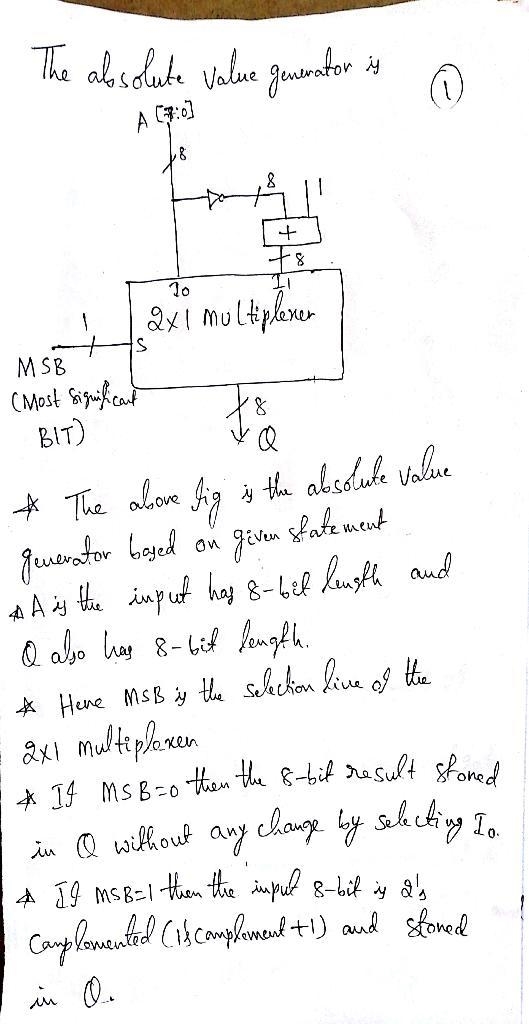 The absolute value generator is
1
A [7:0]
8
8
1
+
8
I0
I1
2x1 multiplexer
1
S
MSB
(Most Significant
BIT)
8
Q
* The above fig is the absolute value
generator based on given statement
* A is the input has 8-bit length and
Q also has 8-bit length.
* Here MSB is the selection line of the
2x1 multiplexer
* If MSB=0 then the 8-bit result stored
in Q without any change by selecting I0.
* If MSB=1 then the input 8-bit is 2's
Complemented (1's complement +1) and stored
in Q.